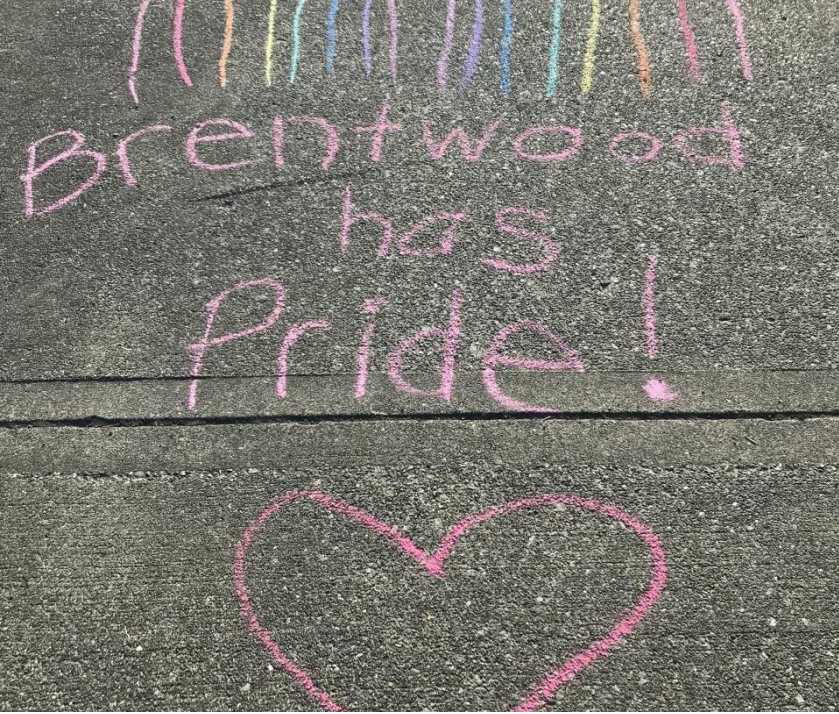 Brentwood
has
Pride!